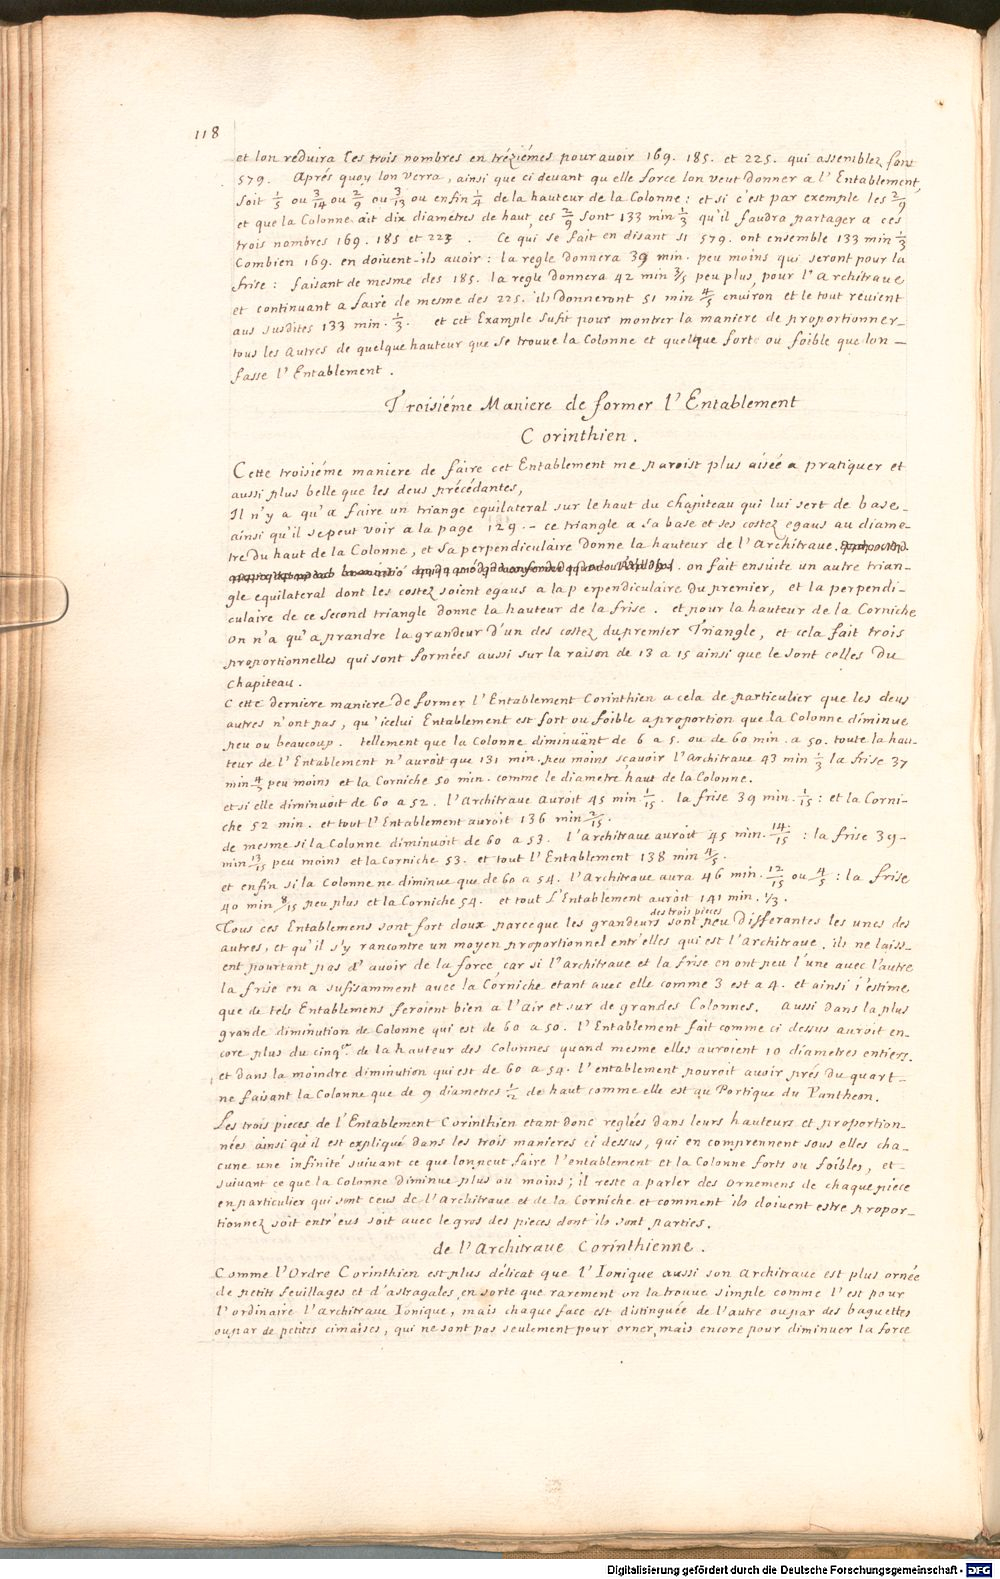 118
et lon reduira ces trois nombres en tréziémes pour auoir 169. 185. et 225. qui assemblez font
579. Aprés quoy lon verra, ainsi que ci deuant qu elle force lon veut donner a l'Entablement,
soit 1/5 ou 3/14 ou 2/9 ou 3/13 ou enfin 1/4 de la hauteur de la Colonne: et si c'est par exemple les 2/9
et que la Colonne ait dix diametres de haut, ces 2/9 sont 133 min 1/3 qu'il faudra partager a ces
trois nombres 169. 185 et 225. Ce qui se fait en disant si 579. ont ensemble 133 min 1/3
Combien 169. en doiuent-ils auoir: la regle donnera 39 min. peu moins qui seront pour la
frise: faisant de mesme des 185. la regle donnera 42 min 3/5 peu plus, pour l'Architraue
et continuant a faire de mesme des 225. ils donneront 51 min 4/5 enuiron et le tout reuient
aus susdites 133 min. 1/3. et cet Example sufit pour montrer la maniere de proportionner
tous les autres de quelque hauteur que se trouue la Colonne et quelque forte ou foible que lon
fasse l'Entablement.
Troisiéme Maniere de former l'Entablement
Corinthien.
Cette troisiéme maniere de faire cet Entablement me paroist plus aisée a pratiquer et
aussi plus belle que les deus précédantes,
Il n'y a qu'a faire un triangle equilateral sur le haut du chapiteau qui lui sert de base
ainsi qu'il se peut voir a la page 129. ce triangle a sa base et ses costez egaus au diame-
tre du haut de la Colonne, et sa perpendiculaire donne la hauteur de l'Architraue.
on fait ensuite un autre trian-
gle equilateral dont les costez soient egaus a la perpendiculaire du premier, et la perpendi-
culaire de ce second triangle donne la hauteur de la frise. et pour la hauteur de la Corniche
on n'a qu'a prandre la grandeur d'un des costez du premier Triangle, et cela fait trois
proportionnelles qui sont formées aussi sur la raison de 13 a 15 ainsi que le sont celles du
chapiteau.
Cette derniere maniere de former l'Entablement Corinthien a cela de particulier que les deus
autres n'ont pas, qu'icelui Entablement est fort ou foible a proportion que la Colonne diminue
peu ou beaucoup. tellement que la Colonne diminuänt de 6 a 5. ou de 60 min. a 50. toute la hau-
teur de l'Entablement n'auroit que 131 min. peu moins sçauoir l'Architraue 43 min 1/3 la frise 37
min peu moins et la Corniche 50 min. comme le diametre haut de la Colonne.
et si elle diminuoit de 60 a 52. l'Architraue auroit 45 min. 1/15. la frise 39 min. 1/15: et la Corni-
che 52 min. et tout l'Entablement auroit 136 min 2/15.
de mesme si la Colonne diminuoit de 60 a 53. l'Architraue auroit 45 min. 14/15: la frise 39
min 13/15 peu moins et la Corniche 53. et tout l'Entablement 138 min 4/5.
et enfin si la Colonne ne diminue que de 60 a 54. l'Architraue aura 46 min. 12/15 ou 4/5: la frise
40 min 8/15 peu plus et la Corniche 54. et tout l'Entablement auroit 141 min. 1/3.
des trois pieces
Tous ces Entablemens sont fort doux parceque les grandeurs sont peu differantes les unes des
autres, et qu'il s'y rancontre un moyen proportionnel entr'elles qui est l'Architraue, ils ne laiss-
ent pourtant pas d'auoir de la force, car si l'Architraue et la frise en ont peu l'une auec l'autre
la frise en a sufisamment auec la Corniche etant auec elle comme 3 est a 4. et ainsi i'estime
que de tels Entablemens feroient bien a l'Air et sur de grandes Colonnes. Aussi dans la plus
grande diminution de Colonne qui est de 60 a 50. l'Entablement fait comme ci dessus auroit en-
core plus du cinq.e de la hauteur des Colonnes quand mesme elles auroient 10 diametres entiers.
et dans la moindre diminution qui est de 60 a 54. l'entablement pouroit auoir prés du quart
ne faisant la Colonne que de 9 diametres 1/2 de haut comme elle est au Portique du Pantheon.
Les trois pieces de l'Entablement Corinthien etant donc reglées dans leurs hauteurs et proportion-
nées ainsi qu'il est expliqué dans les trois manieres ci dessus, qui en comprennent sous elles cha-
cune une infinité suiuant ce que lon peut faire l'entablement et la Colonne forts ou foibles, et
suiuant ce que la Colonne diminue plus ou moins; il reste a parler des ornemens de chaque piece
en particulier qui sont ceus de l'Architraue et de la Corniche et comment ils doiuent estre propor-
tionnez soit entr'eus soit auec le gros des pieces dont ils sont parties.
de l'Architraue Corinthienne.
Comme l'Ordre Corinthien est plus délicat que l'Ionique aussi son Architraue est plus ornée
de petits feuillages et d'astragales, en sorte que rarement on la trouue simple comme l'est pour
l'ordinaire l'architraue Ionique, mais chaque face est distinguée de l'autre ou par des baguettes
ou par de petites cimaises, qui ne sont pas seulement pour orner, mais encore pour diminuer la force
Digitalisierung gefördert durch die Deutsche Forschungsgemeinschaft - DFG